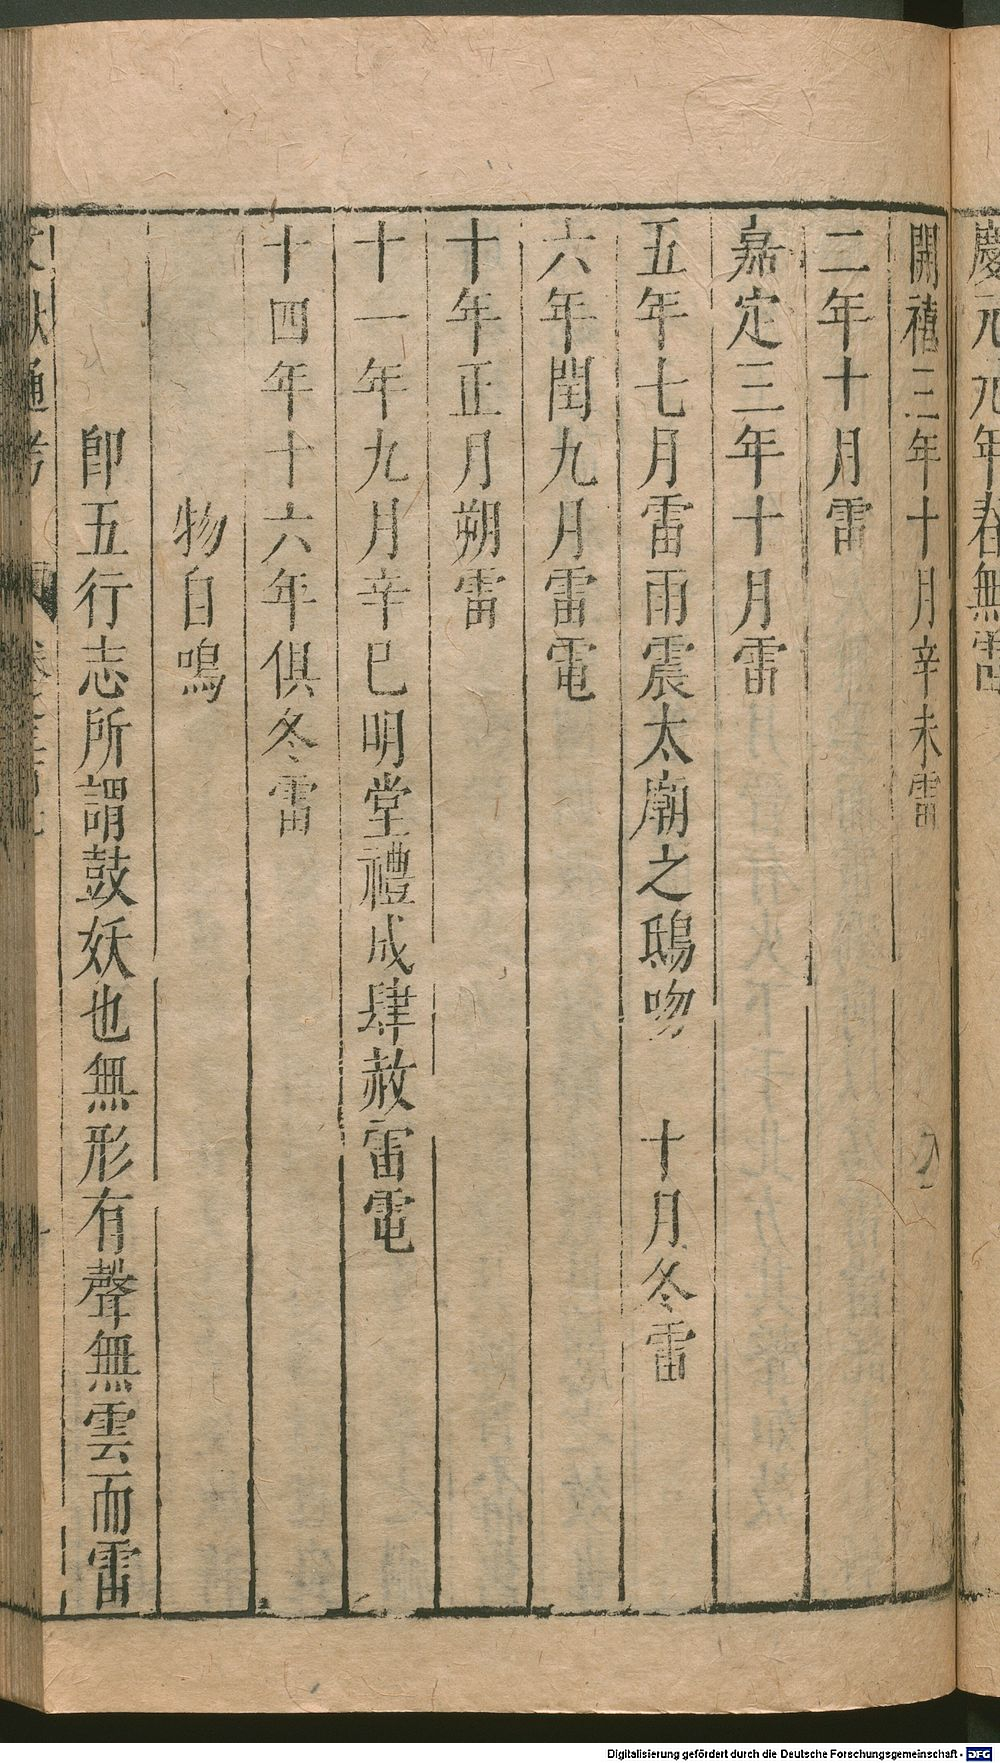 慶元元年春無雷
開禧三年十月辛未雷
二年十月雷
嘉定三年十月雷
五年七月雷雨震太廟之鴟吻　十月冬雷
六年閏九月雷電
十年正月朔雷
十一年九月辛巳明堂禮成肆赦雷電
十四年十六年俱冬雷
物自鳴
卽五行志所謂鼓妖也無形有聲無雲而雷
通考
Digitalisierung gefördert durch die Deutsche Forschungsgemeinschaft - DFG